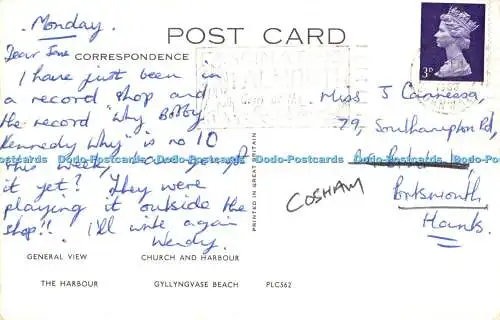 . Monday.
POST CARD
Dear Jane
CORRESPONDENCE
I have just been in
a record shop and
the record "Why Bobby
Kennedy Why" is no 10
this week, have you got
it yet? They were
playing it outside the
shop!! I'll write again
Wendy.
GENERAL VIEW
CHURCH AND HARBOUR
THE HARBOUR
GYLLYNGVASE BEACH
PLC562
PRINTED IN GREAT BRITAIN
3D
Miss J
79, Southampton Rd,
COSHAM
Portsmouth
Hants.
Dodo-Postcards Dodo-Postcards Dodo-Postcards Dodo-Postcards Dodo-Postcards Dodo-Postcards